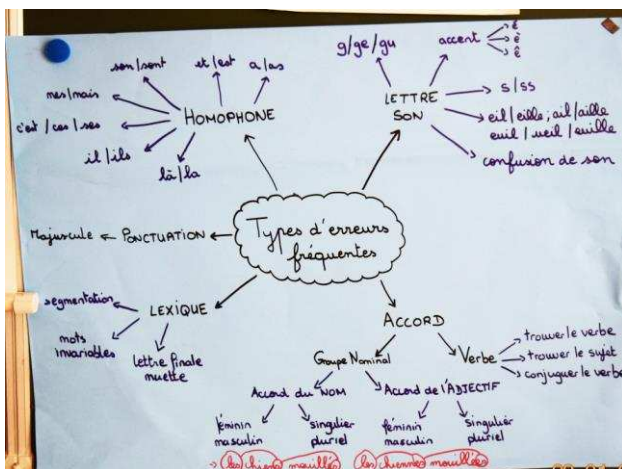 son/sont
et/est
a/as
mes/mais
c'est / ces / ses
il/ils
là/la
HOMOPHONE
g/ge/gu
accent
é
è
ê
LETTRE
SON
s/ss
eil/eille ; ail/aille
euil / ueil / euille
confusion de son
Types d'erreurs
fréquentes
Majuscule
PONCTUATION
LEXIQUE
segmentation
mots
invariables
lettre finale
muette
ACCORD
Groupe Nominal
Verbe
trouver le verbe
trouver le sujet
conjuguer le verbe
Accord du NOM
Accord de l'ADJECTIF
féminin
masculin
singulier
pluriel
féminin
masculin
singulier
pluriel
les chiens mouillés
les chiennes mouillées